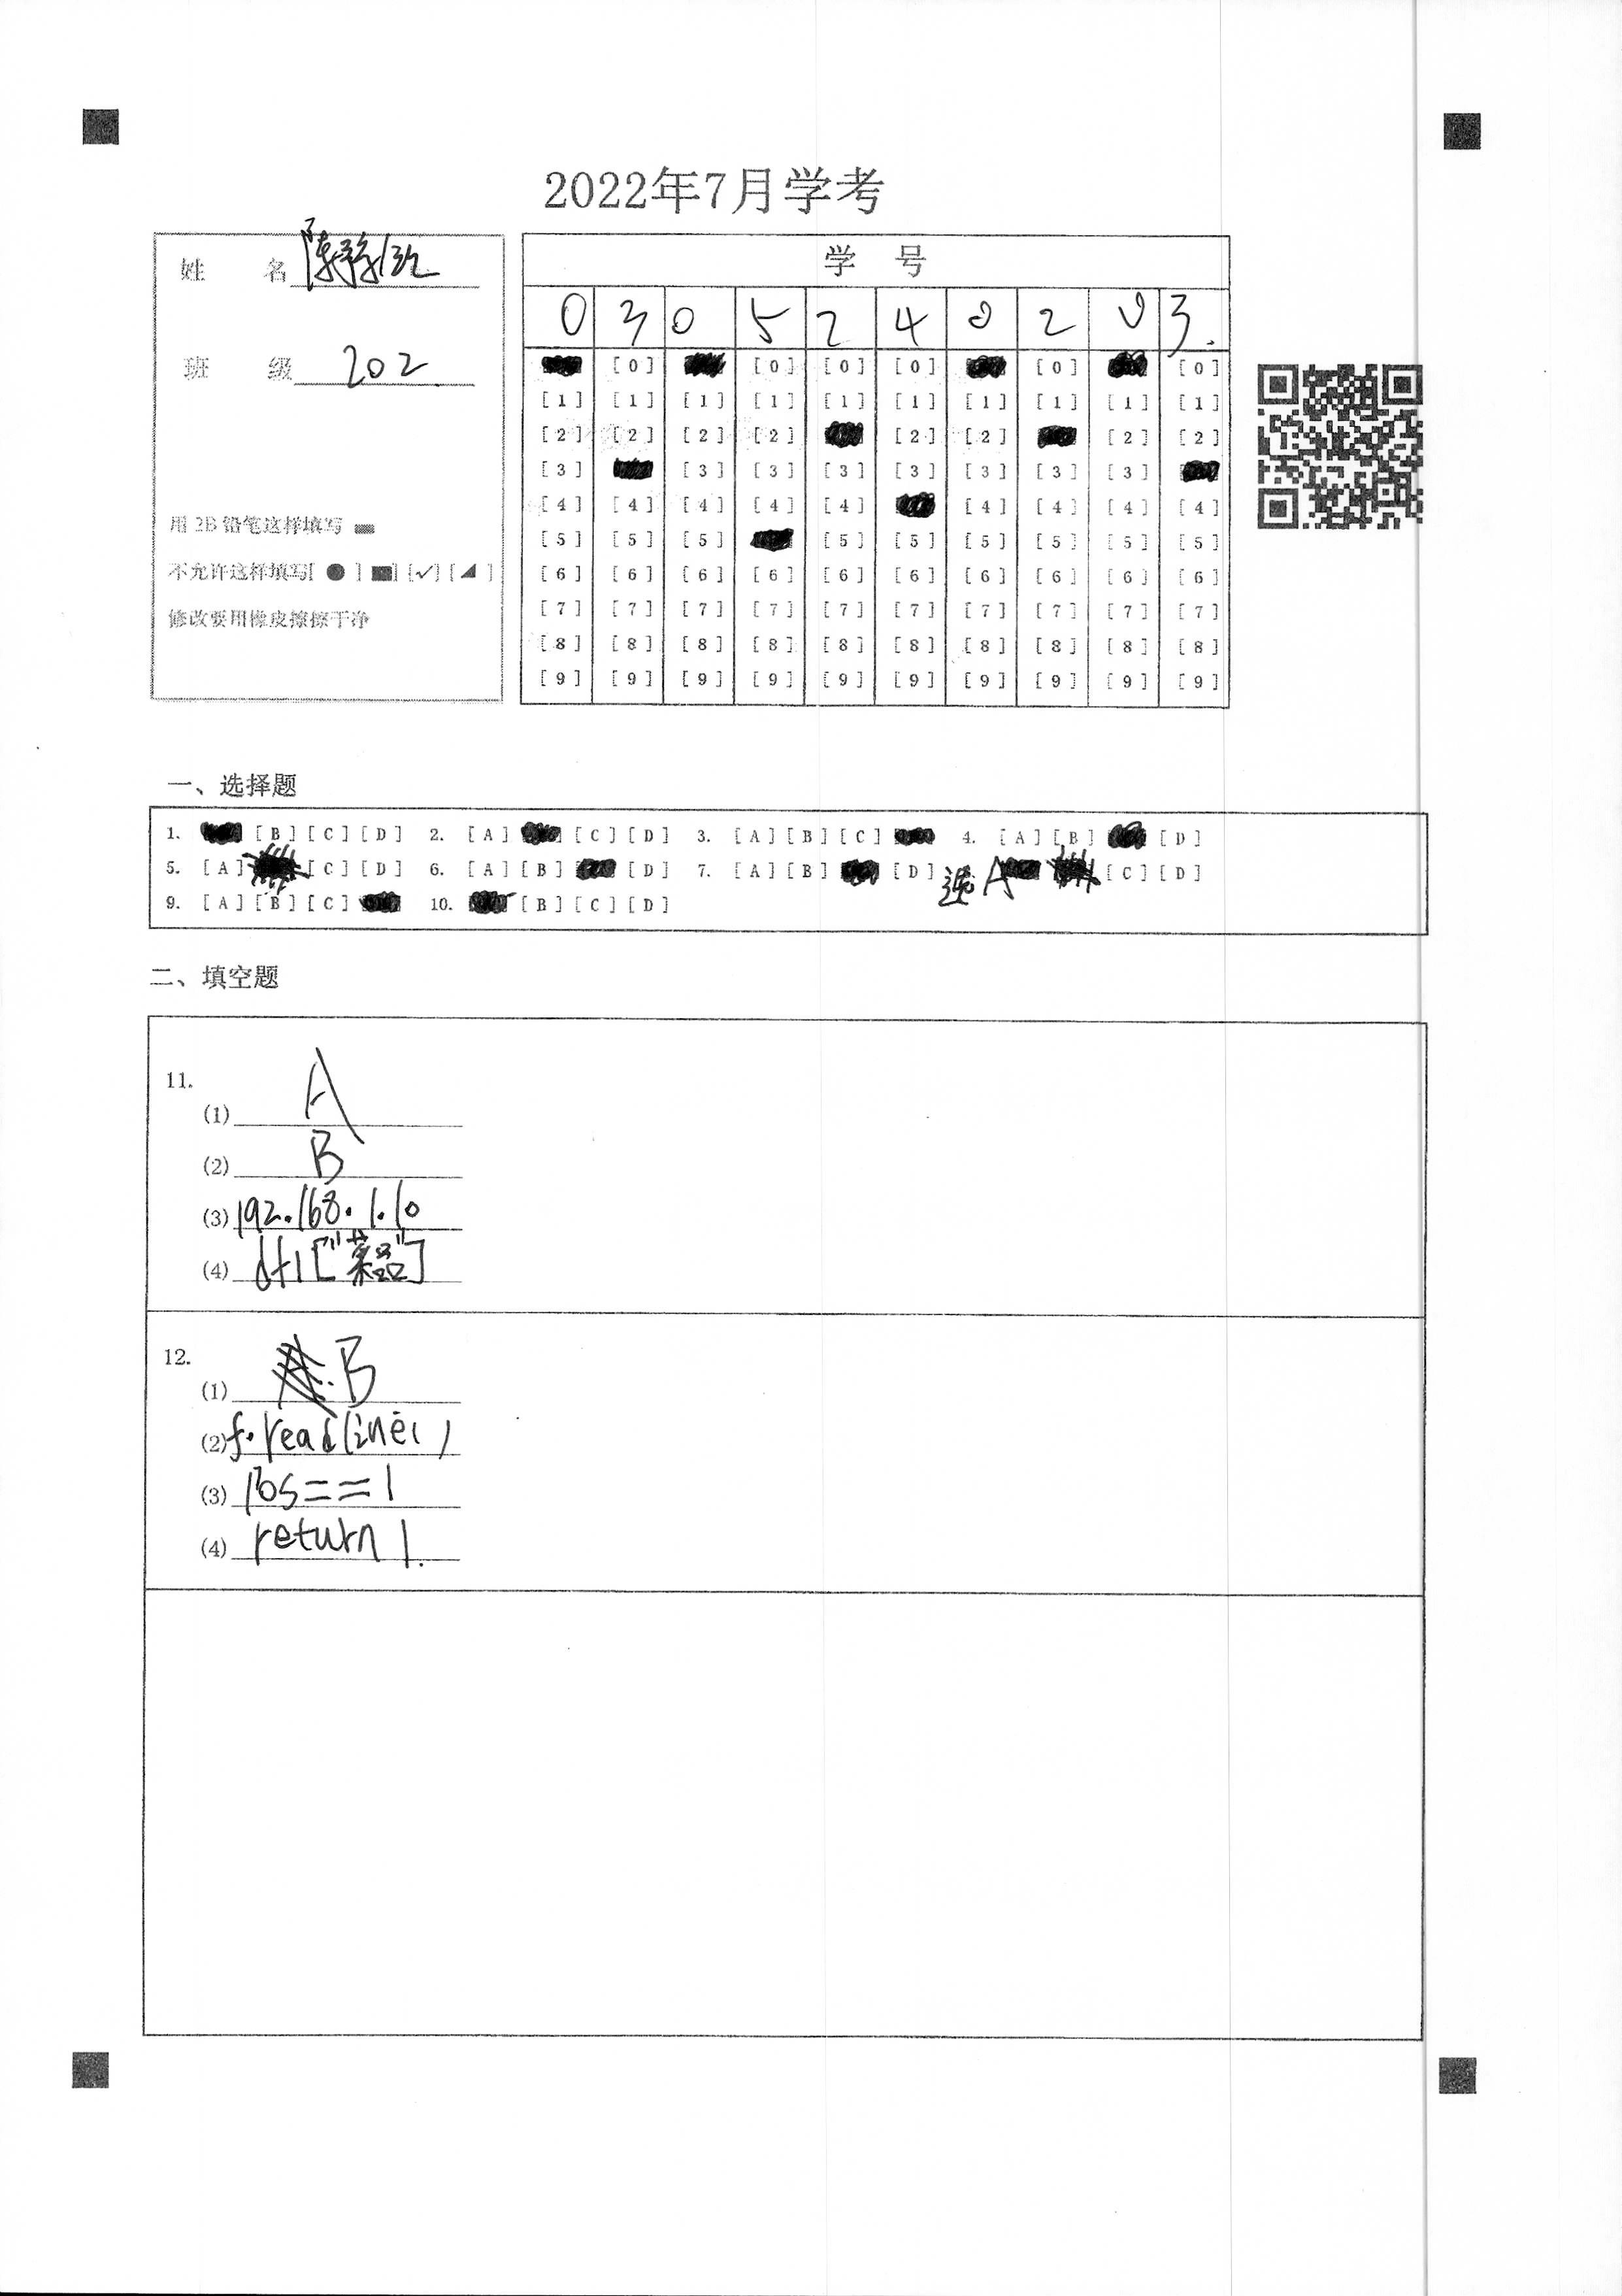 2022年7月学考
姓 名 陈
班 级 202
用 2B 铅笔这样填写
不允许这样填写[ ● ] [■] [✓] [◢ ]
修改要用橡皮擦擦干净
学 号
0 3 0 5 2 4 0 2 0 3.
[0] [0] [0] [0] [0] [0]
[1] [1] [1] [1] [1] [1] [1] [1] [1] [1]
[2] [2] [2] [2] [2] [2] [2] [2]
[3] [3] [3] [3] [3] [3] [3] [3]
[4] [4] [4] [4] [4] [4] [4] [4] [4]
[5] [5] [5] [5] [5] [5] [5] [5] [5]
[6] [6] [6] [6] [6] [6] [6] [6] [6] [6]
[7] [7] [7] [7] [7] [7] [7] [7] [7] [7]
[8] [8] [8] [8] [8] [8] [8] [8] [8] [8]
[9] [9] [9] [9] [9] [9] [9] [9] [9] [9]
一、选择题
1. [B] [C] [D] 2. [A] [C] [D] 3. [A] [B] [C] 4. [A] [B] [D]
5. [A] [C] [D] 6. [A] [B] [D] 7. [A] [B] [D] 选 A [C] [D]
9. [A] [B] [C] 10. [B] [C] [D]
二、填空题
11.
(1) A
(2) B
(3) 192.168.1.10
(4) df1["菜品"]
12.
(1) B
(2) f.readline()
(3) pos==1
(4) return 1.